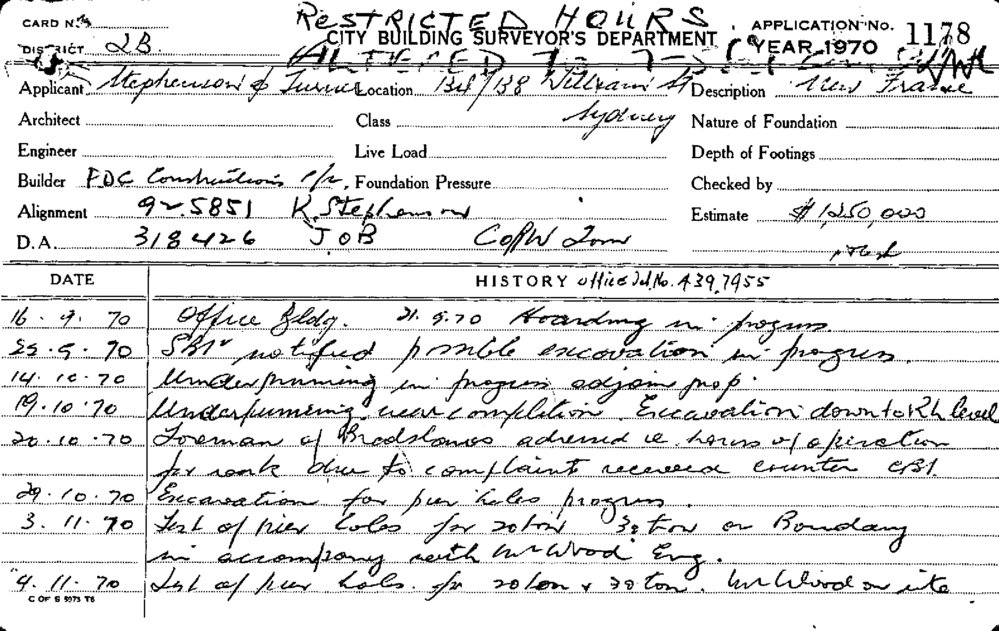 RESTRICTED HOURS
CARD No.
CITY BUILDING SURVEYOR'S DEPARTMENT
APPLICATION No. 1178
DISTRICT 2B
ALTERED 7 - 7
YEAR 1970
Applicant Stephenson & Turner Location 134/138 William St Description New Frame
Architect Class Sydney Nature of Foundation
Engineer Live Load Depth of Footings
Builder FDC Constructions P/L, Foundation Pressure Checked by
Alignment 92.5851 K. Stephenson Estimate $1,250,000
D.A. 318426 JOB
DATE HISTORY office Tel. No. 439,7955
16.9.70 Office Bldg. 21.9.70 Hoarding in progress
25.9.70 notified possible excavation in progress.
14.10.70 Underpinning in progress adjoin prop.
19.10.70 Underpinning near completion. Excavation down to level
20.10.70 Foreman of advised re hours of operation
for work due to complaint received counter CBS.
29.10.70 Excavation for pier holes progress.
3.11.70 Test of pier holes for 20 ton 30 ton on Boundary
in accompany with Mr Wood Eng.
4.11.70 Test of pier hols. for 20 ton & 30 ton. Mr Wood on site
C OF S 5973 T6